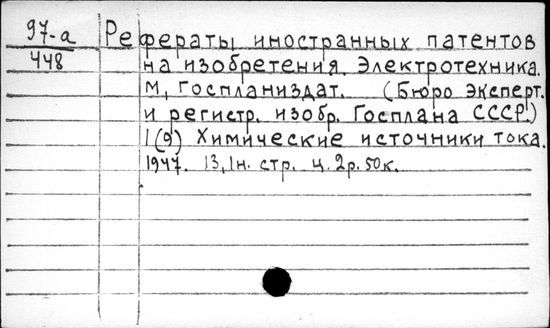 97-а
448
Рефераты иностранных патентов
на изобретения. Электротехника.
М, Госпланиздат. (Бюро Эксперт.
и регистр. изобр. Госплана СССР.)
1(9) Химические источники тока.
1947. 13, 1н. стр. ц. 2р. 50к.